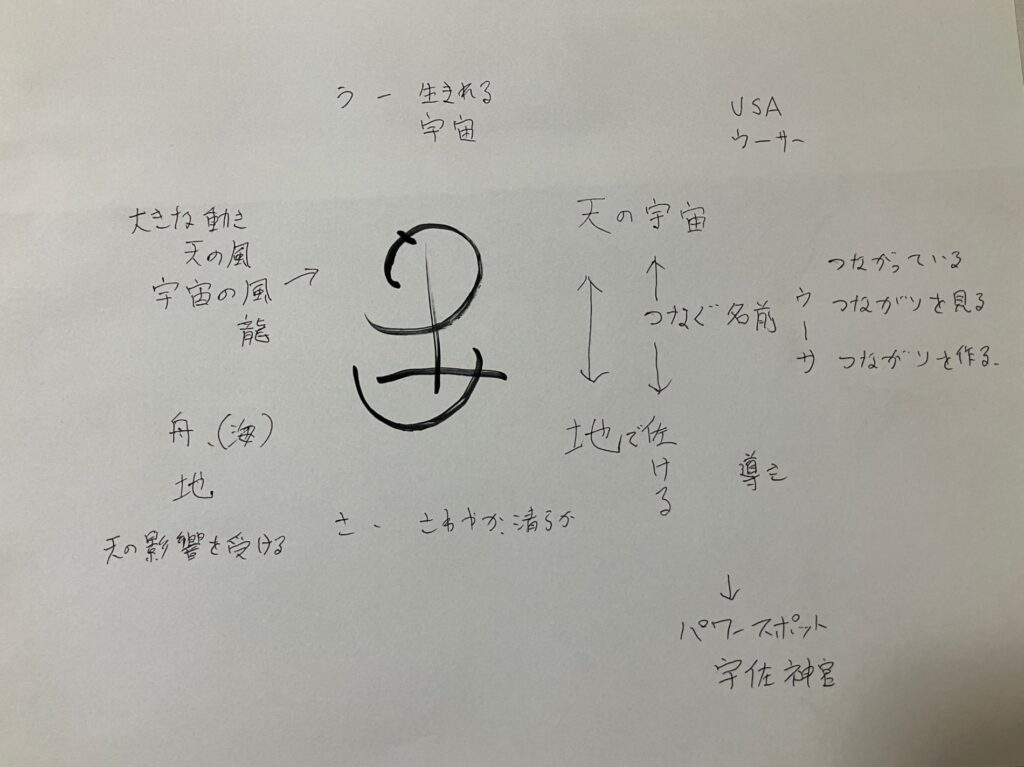 う ー 生まれる
宇宙
USA
ウーサー
大きな動き
天の風
宇宙の風 →
龍
天の宇宙
↑
つなぐ名前
↓
ウーサ
つながっている
つながりを見る
つながりを作る。
舟、(海)
地
天の影響を受ける
地で佐ける
導き
さ - さわやか、清らか
↓
パワースポット
宇佐神宮